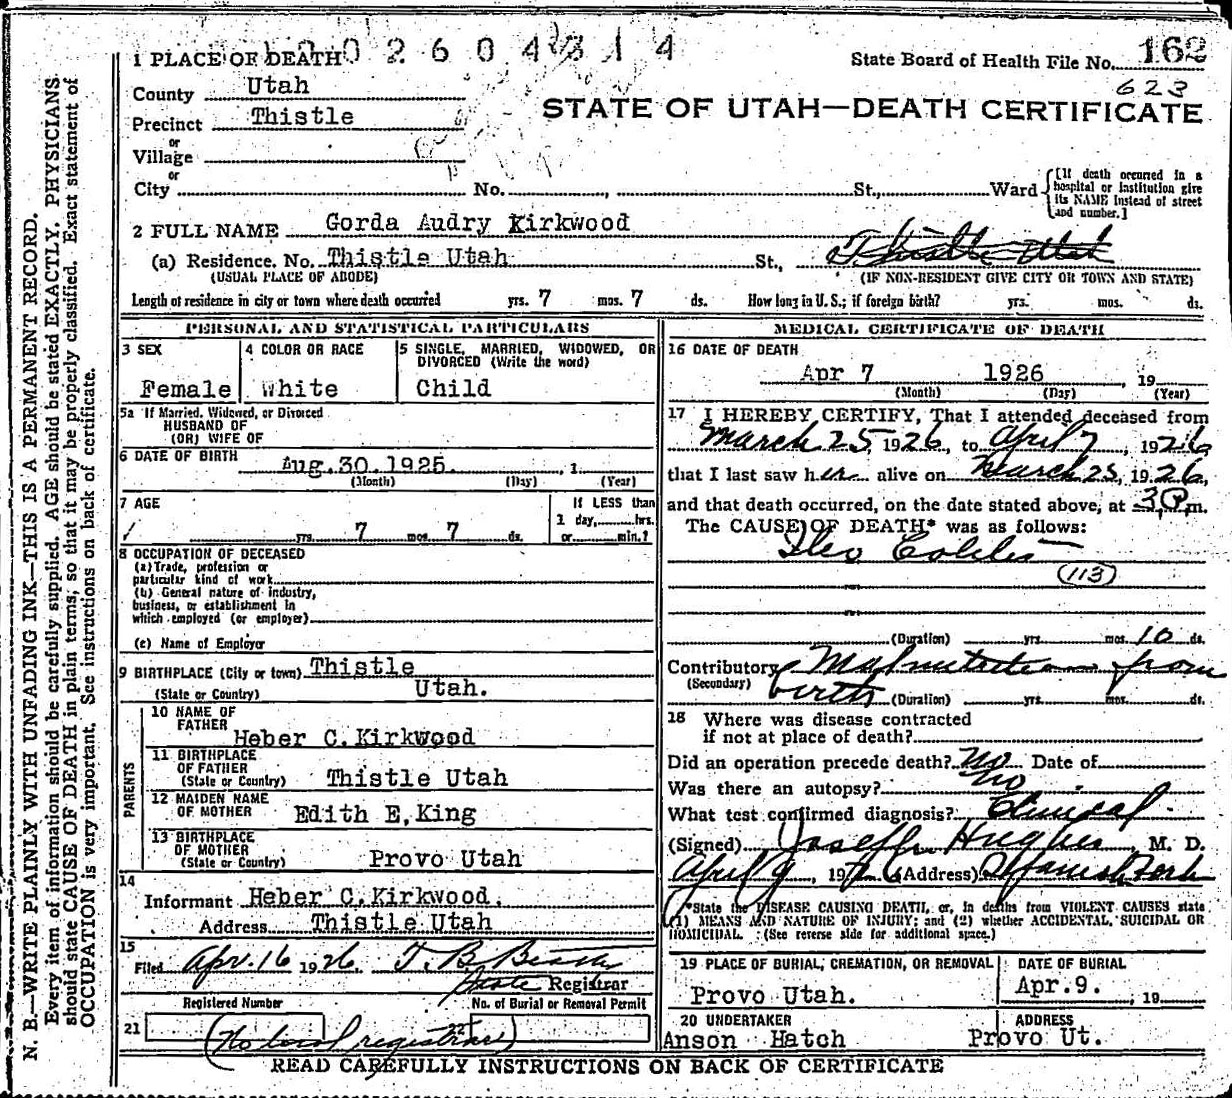 1 PLACE OF DEATH 0 2 6 0 4 3 1 4
State Board of Health File No. 162
623
County Utah
STATE OF UTAH—DEATH CERTIFICATE
Precinct Thistle
or
Village
or
City No. , St., Ward
[If death occurred in a hospital or institution give its NAME instead of street and number.]
2 FULL NAME Gorda Audry Kirkwood
(a) Residence. No. Thistle Utah St., Thistle Utah
(USUAL PLACE OF ABODE) (IF NON-RESIDENT GIVE CITY OR TOWN AND STATE)
Length of residence in city or town where death occurred yrs. 7 mos. 7 ds. How long in U. S.; if foreign birth? yrs. mos. ds.
PERSONAL AND STATISTICAL PARTICULARS
3 SEX 4 COLOR OR RACE 5 SINGLE, MARRIED, WIDOWED, OR DIVORCED (Write the word)
Female White Child
5a If Married, Widowed, or Divorced
HUSBAND OF
(OR) WIFE OF
6 DATE OF BIRTH Aug. 30. 1925. , 1
(Month) (Day) (Year)
7 AGE If LESS than
1 day, hrs.
yrs. 7 mos. 7 ds. or min.?
8 OCCUPATION OF DECEASED
(a) Trade, profession or
particular kind of work
(b) General nature of industry,
business, or establishment in
which employed (or employer)
(c) Name of Employer
9 BIRTHPLACE (City or town) Thistle
(State or Country) Utah.
PARENTS
10 NAME OF
FATHER Heber C. Kirkwood
11 BIRTHPLACE
OF FATHER
(State or Country) Thistle Utah
12 MAIDEN NAME
OF MOTHER Edith E, King
13 BIRTHPLACE
OF MOTHER
(State or Country) Provo Utah
14
Informant Heber C. Kirkwood.
Address Thistle Utah
15
Filed Apr. 16 1926.
State Registrar
Registered Number No. of Burial or Removal Permit
21 22
(No local registrar)
MEDICAL CERTIFICATE OF DEATH
16 DATE OF DEATH
Apr 7 1926 , 19
(Month) (Day) (Year)
17 I HEREBY CERTIFY, That I attended deceased from
March 25, 1926, to April 7, 1926
that I last saw her alive on March 25, 1926,
and that death occurred, on the date stated above, at 3 P. m.
The CAUSE OF DEATH* was as follows:
Ileo Colitis
(113)
(Duration) yrs. mos. 10 ds.
Contributory Malnutrition from
(Secondary) birth (Duration) yrs. mos. ds.
18 Where was disease contracted
if not at place of death?
Did an operation precede death? No Date of
Was there an autopsy? No
What test confirmed diagnosis? Clinical
(Signed) Joseph Hughes, M. D.
April 9, 1926 (Address) Spanish Fork
*State the DISEASE CAUSING DEATH, or, in deaths from VIOLENT CAUSES state
(1) MEANS AND NATURE OF INJURY; and (2) whether ACCIDENTAL, SUICIDAL OR
HOMICIDAL. (See reverse side for additional space.)
19 PLACE OF BURIAL, CREMATION, OR REMOVAL DATE OF BURIAL
Provo Utah. Apr. 9. , 19
20 UNDERTAKER ADDRESS
Anson Hatch Provo Ut.
READ CAREFULLY INSTRUCTIONS ON BACK OF CERTIFICATE
N. B.—WRITE PLAINLY WITH UNFADING INK—THIS IS A PERMANENT RECORD.
Every item of information should be carefully supplied. AGE should be stated EXACTLY. PHYSICIANS
should state CAUSE OF DEATH in plain terms, so that it may be properly classified. Exact statement of
OCCUPATION is very important. See instructions on back of certificate.